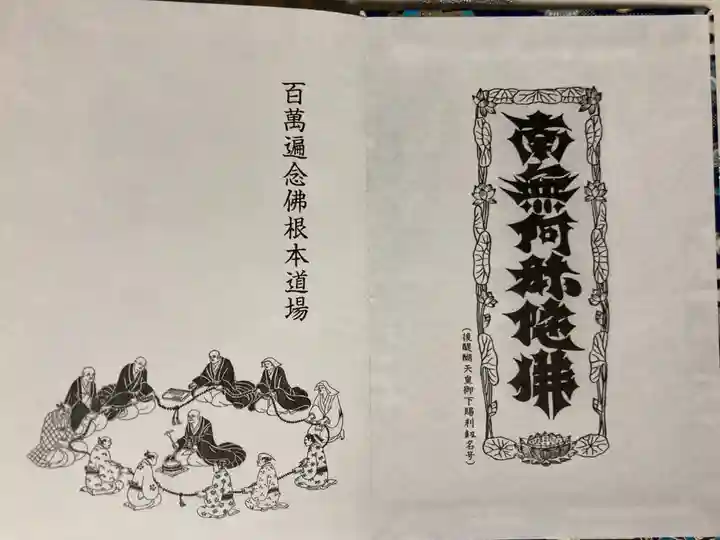 南無阿弥陀佛
(後醍醐天皇御下賜利劔名号)
百萬遍念佛根本道場